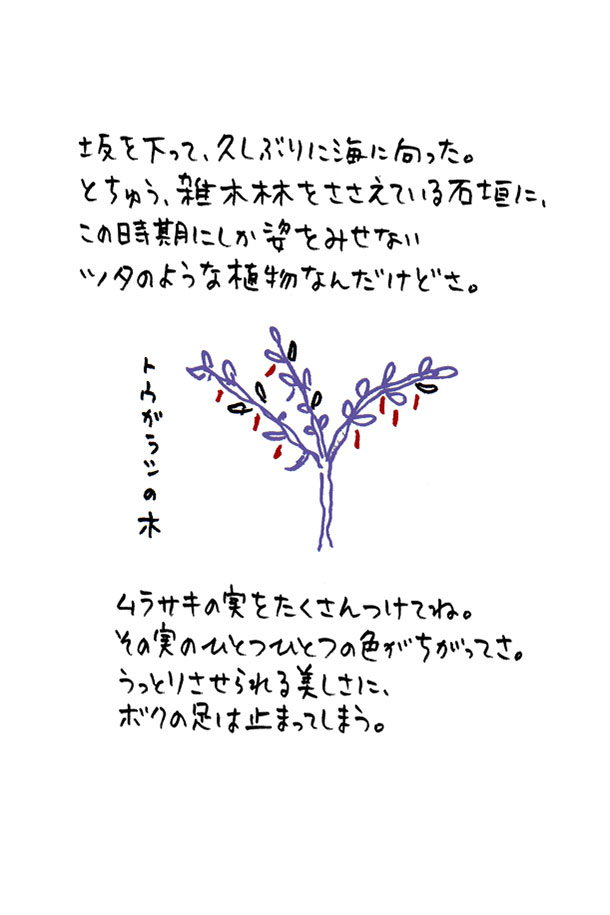 坂を下って、久しぶりに海に向った。
とちゅう、雑木林をささえている石垣に、
この時期にしか姿をみせない
ツタのような植物なんだけどさ。
トウガラシの木
ムラサキの実をたくさんつけてね。
その実のひとつひとつの色がちがってさ。
うっとりさせられる美しさに、
ボクの足は止まってしまう。